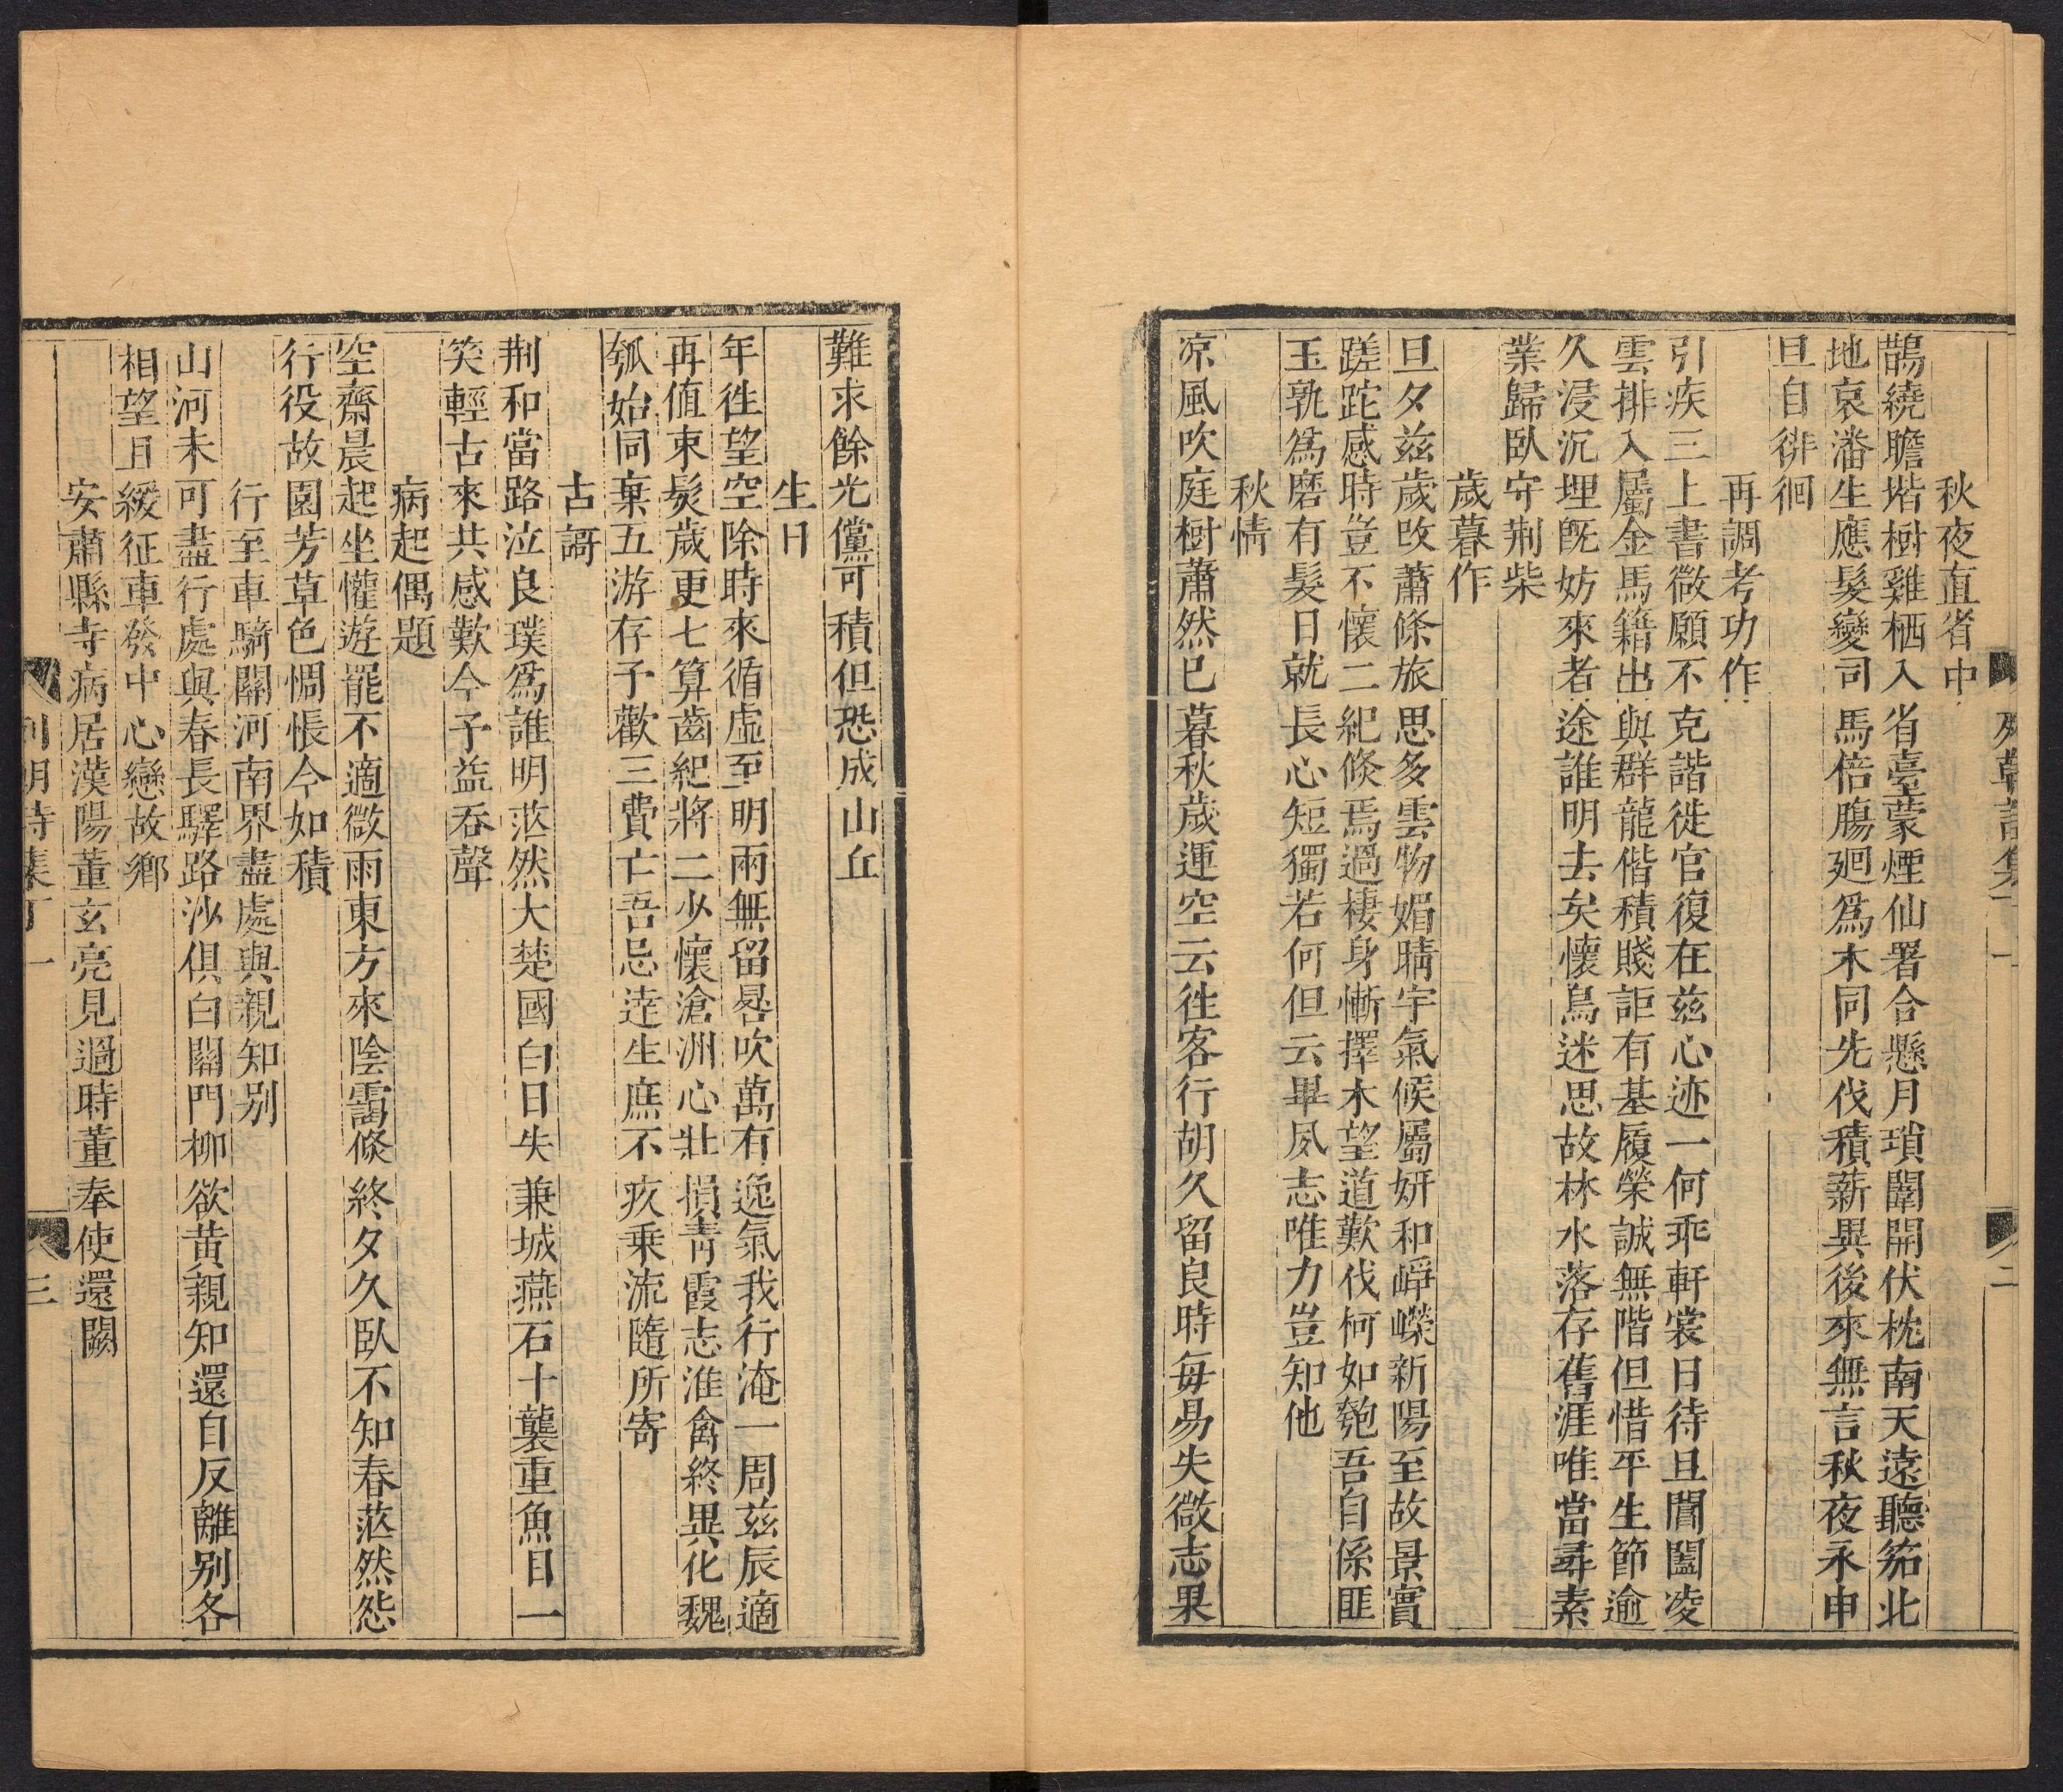 秋夜直省中
鵲繞瞻堦樹雞栖入省臺蒙煙仙署合懸月瑣闈開伏枕南天遠聽笳北
地哀潘生應髮變司馬倍腸廻爲木同先伐積薪異後來無言秋夜永申
旦自徘徊
再調考功作
引疾三上書微願不克諧徙官復在兹心迹一何乖軒裳日待旦閶闔凌
雲排入屬金馬籍出與群龍偕積賤詎有基履榮誠無階但惜平生節逾
久浸沉埋旣妨來者途誰明去矣懷鳥迷思故林水落存舊涯唯當尋素
業歸臥守荆柴
歲暮作
旦夕兹歲改蕭條旅思多雲物媚晴宇氣候屬妍和崢嶸新陽至故景實
蹉跎感時豈不懷二紀倏焉過棲身慚擇木望道歎伐柯如匏吾自係匪
玉孰爲磨有髮日就長心短獨若何但云畢夙志唯力豈知他
秋情
凉風吹庭樹蕭然已暮秋歲運空云徃客行胡久留良時每易失微志果
列朝詩集丁一
二
難求餘光儻可積但恐成山丘
生日
年徃望空除時來循虛至明兩無留晷吹萬有逸氣我行淹一周兹辰適
再値束髮歲更七算齒紀將二少懷滄洲心壯損靑霞志淮禽終異化魏
瓠始同棄五游存予歡三費亡吾忌逹生庶不疚乗流隨所寄
古謌
荆和當路泣良璞爲誰明茫然大楚國白日失兼城燕石十襲重魚目一
笑輕古來共感歎今予益呑聲
病起偶題
空齋晨起坐懽遊罷不適微雨東方來陰靄倏終夕久臥不知春茫然怨
行役故園芳草色惆悵今如積
行至車騎關河南界盡處與親知别
山河未可盡行處與春長驛路沙俱白關門柳欲黃親知還自反離别各
相望且緩征車發中心戀故鄉
安肅縣寺病居漢陽董玄亮見過時董奉使還闕
列朝詩集丁一
三